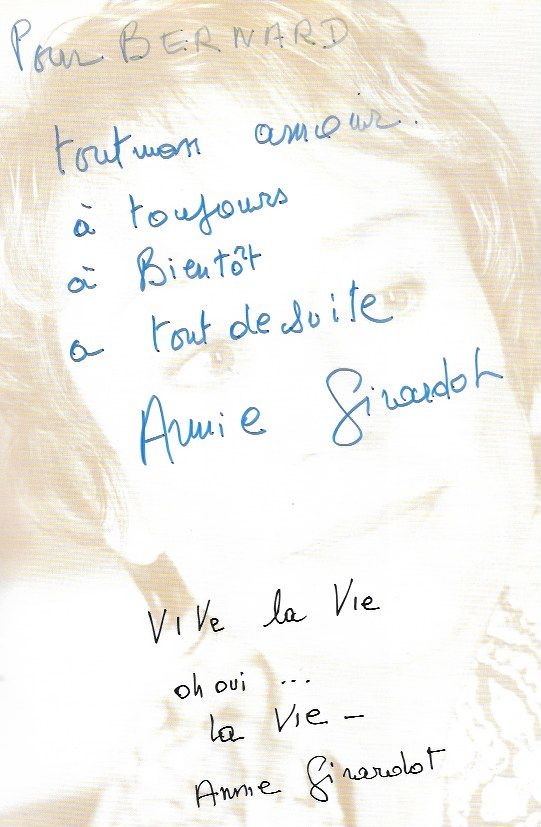 Pour BERNARD
tout mon amour.
à toujours
à Bientôt
a tout de suite
Annie Girardot
VIVe la VIe
oh oui ...
la VIe –
Annie Girardot